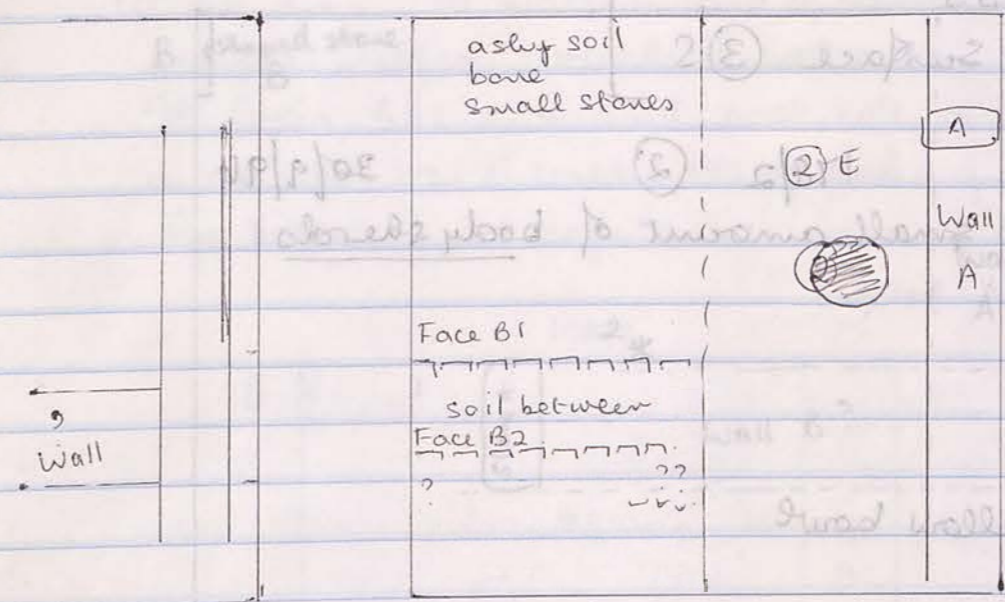 ashy soil
bone
small stones
A
② E
Wall
A
2
Face B1
soil between
Face B2
?
??
?
Wall